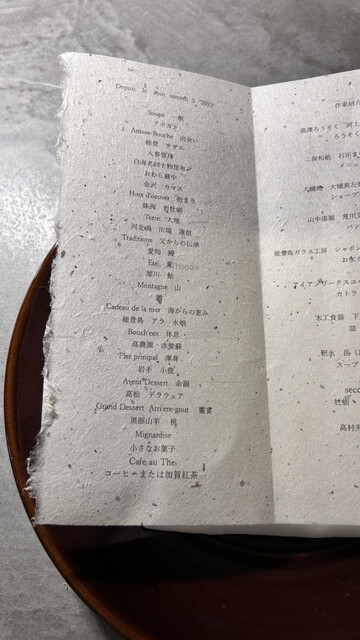 Depuis le jour samedi 5, "2023"
Soupe
アボガド
Amuse-Bouche 出会い
能登 サザエ
人参饂飩
白海老四十物昆布〆
おわら踊中
金沢 カマス
Hors d'oeuver 始まり
珠洲 岩牡蠣
Terre 大地
河北潟 川端 蓮根
Traditions 父からの伝承
愛知 鰻
Eau
犀川 鮎
Montagne 山
Cadeau de la mer 海からの恵み
能登島 アラ 水畑
Bouch'ees 休息
高農園 赤紫蘇
Plat prinipal 渾身
岩手 小鹿
Avent Dessert 余韻
高松 デラウェア
Grand Dessert Arriere-gout 饗宴
黒部山羊 桃
Mignardise
小さなお菓子
Cafe au The
コーヒーまたは加賀紅茶
作家紹介
高澤ろうそく 河上
ろうそく
二俣和紙 石川ま
メニュ
大樋焼 大樋長左衛
ショープ
山中漆器
パン
能登島ガラス工房 シャボン
アイアンワークスコ
カトラ
木工食器 下
皿
釈永 岳
スープ
seco
牡蛎
高村